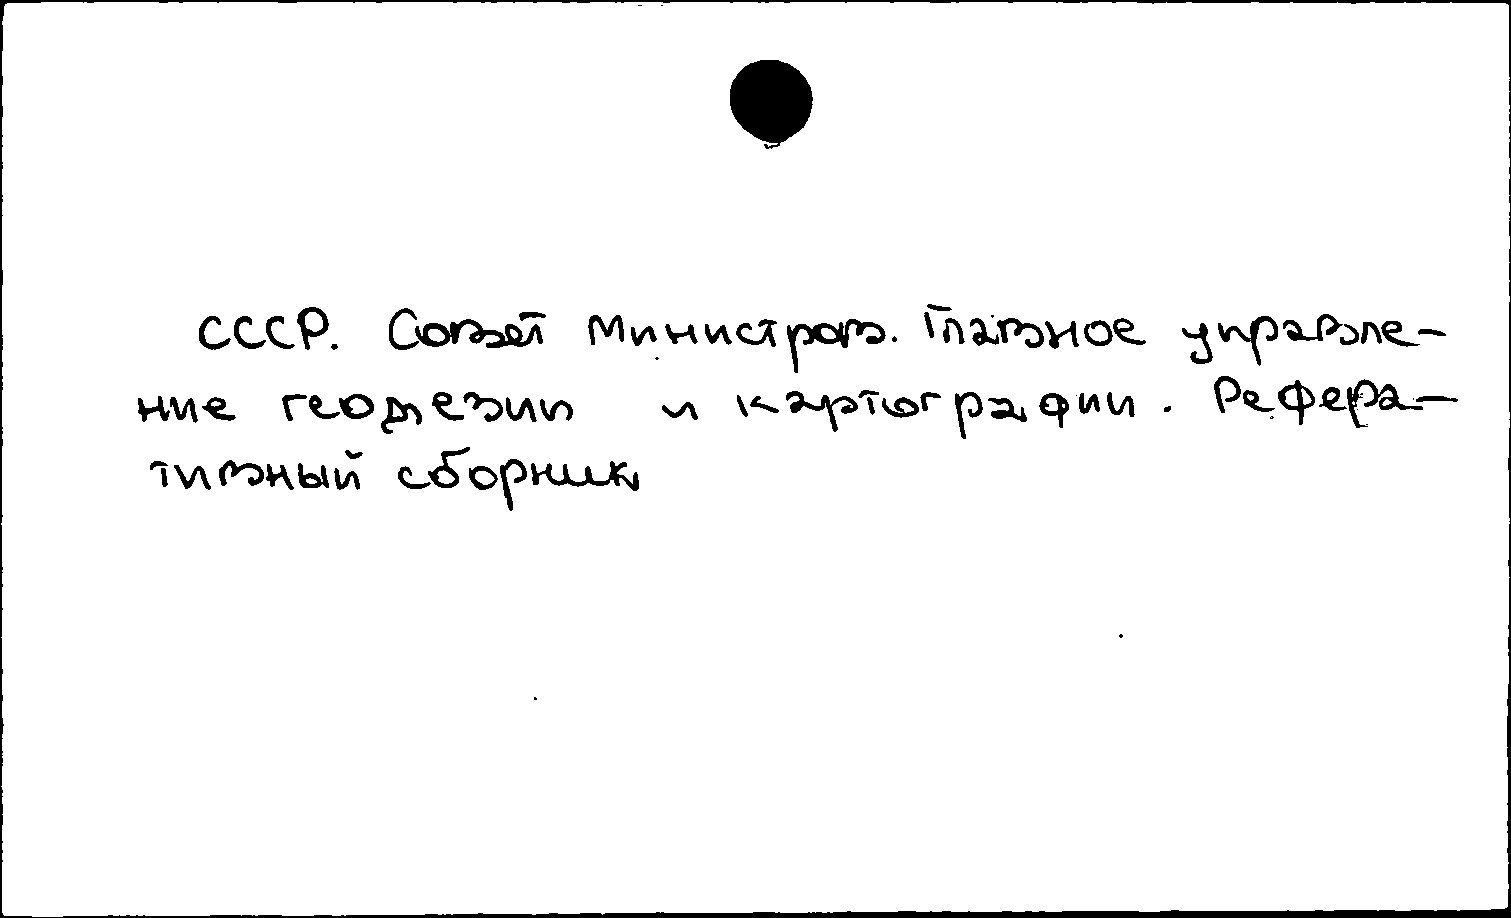 СССР. Совет Министров. Главное управле-
ние геодезии и картографии. Рефера-
тивный сборник